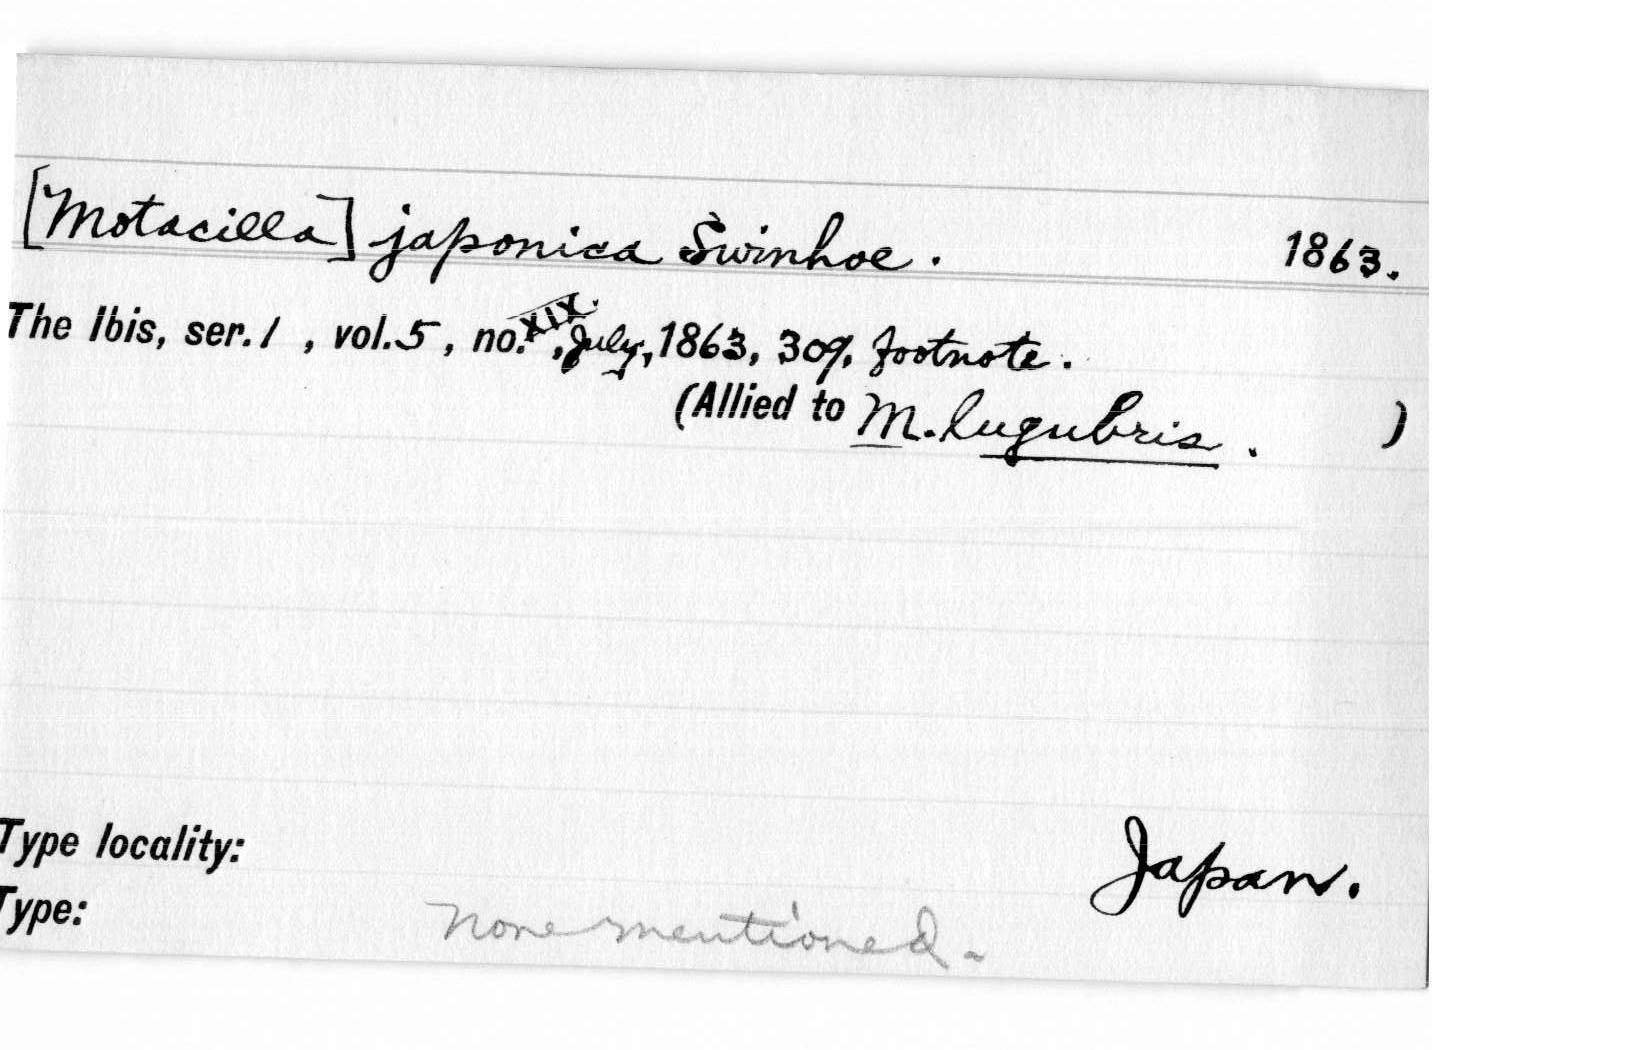 [Motacilla] japonica Swinhoe. 1863.
The Ibis, ser. 1, vol. 5, no. XIX., July, 1863, 309, footnote.
(Allied to M. lugubris. )
Type locality: Japan.
Type: None mentioned.